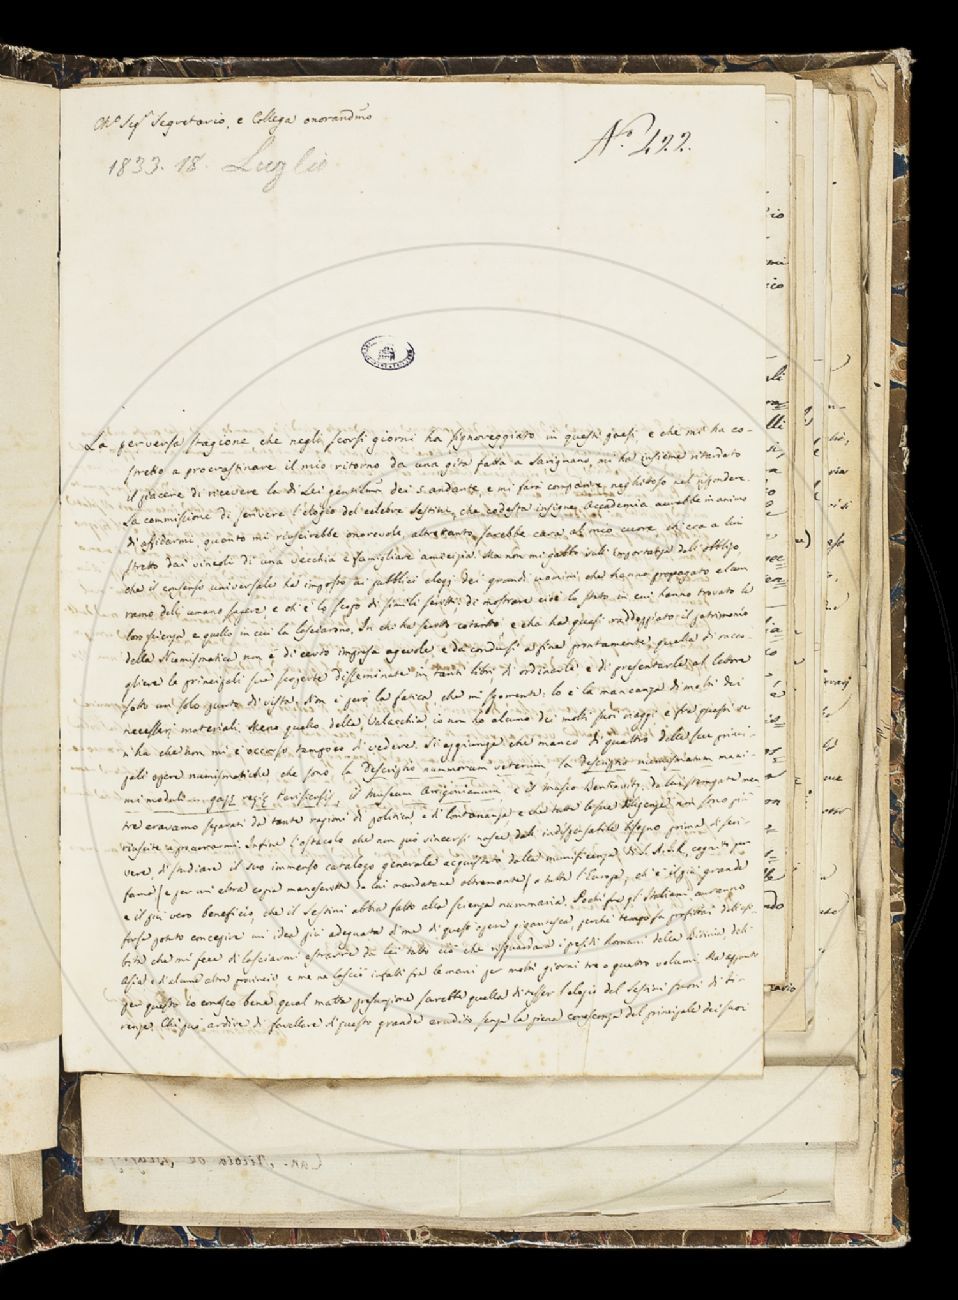 Ch.º Sig.r Segretario, e Collega onorandmo
Nº. 422.
1833. 18. Luglio
La perversa stagione che negli scorsi giorni ha signoreggiato in questi paesi, e che mi ha co-
stretto a procrastinare il mio ritorno da una gita fatta a Savignano, mi ha insieme ritardato
il piacere di ricevere la di Lei gentilma dei 5. andante, e mi farà comparire neghittoso nel rispondere.
La commissione di scrivere l'elogio del celebre Sestini, che codesta insigne Accademia avrebbe in animo
di affidarmi, quanto mi riuscirebbe onorevole, altrettanto sarebbe cara al mio cuore ch'era a lui
stretto dai vincoli di una vecchia e famigliare amicizia. Ma non mi sono dell'obbligo,
che il consenso universale ha imposto ai pubblici elogj dei grandi uomini, che hanno propagato alcun
ramo dell'umano sapere e ch'è lo scopo di simili scritti di mostrare cioè lo stato in cui hanno trovato la
loro scienza e quello in cui la lasciarono. In chi ha scritto cotanto e che ha quasi raddoppiato il patrimonio
della Numismatica non è di certo impresa agevole e da condursi a fine prontamente quella di racco-
gliere le principali sue scoperte disseminate in tanti libri di ordinarle, e di presentarle al lettore
sotto un solo punto di vista. Non è però la fatica, che mi sgomenta: lo è la mancanza di molti dei
necessarj materiali. Meno quello della Valacchia io non ho alcuno dei molti suoi viaggi e fra questi ve
n'ha che non mi è occorso tampoco di vedere. Si aggiunga che manco di quattro delle sue princi-
pali opere numismatiche che sono, la Descriptio nummorum veterum, la Descriptio numismatum maxi-
mi moduli regis il Museum Arigonianum e il Museo Bentivogli, da lui stampate men
tre eravamo separati da tante ragioni di politica, e di lontananza e che tutte le sue diligenze non sono più
riuscite a procurarmi. Infine l'ostacolo che non può vincersi nasce dall'indispensabile bisogno prima di scri-
vere, di studiare il suo immenso catalogo generale acquistato dalla munificenza di S.A.I.R., cognito per
fama (e per un'altra copia manoscritta da lui mandatane oltremonte) a tutta l'Europa, ch'è il più grande
e il più vero beneficio, che il Sestini abbia fatto alla scienza nummaria. Pochi fra gl'Italiani avranno
forse potuto concepire un'idea più adeguata di me di quest'opera gigantesca, perchè tempo fa profittai dell'esi-
bita che mi fece di lasciarmi estrarre da lui tutto ciò che risguardava i presidi Romani della Bitinia, dell'
Asia e di alcune altre provincie e me ne lasciò infatti fra le mani per molti giorni tre o quattro volumi. Ma appunto
per questo io conosco bene qual matta presunzione sarebbe quella di tesser l'elogio del Sestini fuori di Fi-
renze. Chi può ardire di favellare di questo grande erudito senza la piena conoscenza del principale dei suoi